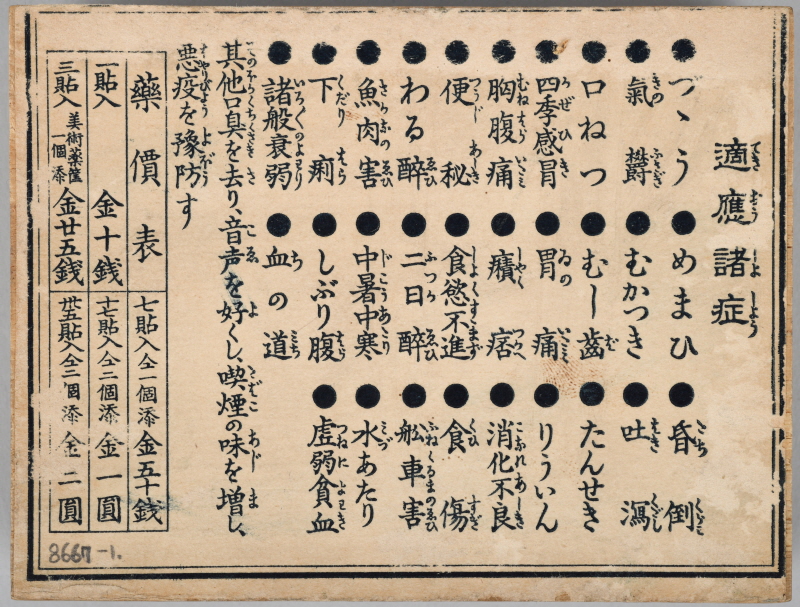 適應諸症
●づゝう ●めまひ ●昏倒
●氣鬱 ●むかつき ●吐瀉
●口ねつ ●むし齒 ●たんせき
●四季感冒 ●胃痛 ●りういん
●胸腹痛 ●癪痞 ●消化不良
●便秘 ●食慾不進 ●食傷
●わる醉 ●二日醉 ●舩車害
●魚肉害 ●中暑中寒 ●水あたり
●下痢 ●しぶり腹 ●虚弱貧血
●諸般衰弱 ●血の道
其他口臭を去り、音声を好くし、喫煙の味を増し、
悪疫を豫防す
藥價表
一貼入 金十銭
三貼入 美術薬篋一個添 金廿五銭
七貼入 仝一個添 金五十銭
十七貼入 仝二個添 金一圓
卅五貼入 仝三個添 金二圓
8667-1.